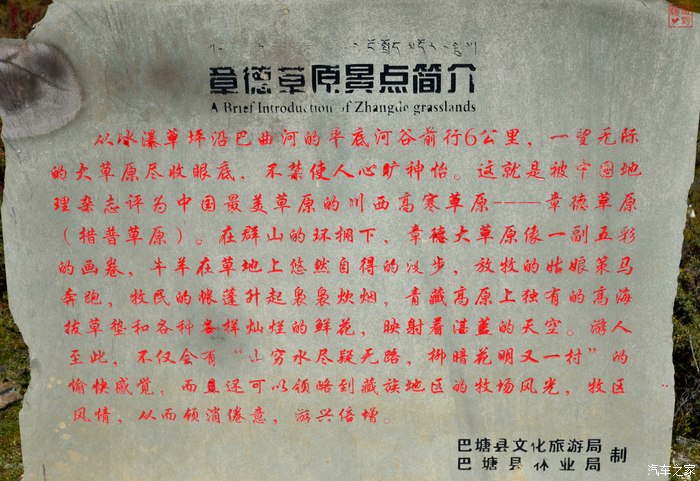 章德草原景点简介
A Brief Introduction of Zhangde grasslands
从冰瀑草坪沿巴曲河的半底河谷前行6公里，一望无际
的大草原尽收眼底，不禁使人心旷神怡。这就是被中国地
理杂志评为中国最美草原的川西高寒草原----章德草原
（措普草原）。在群山的环拥下，章德大草原像一副五彩
的画卷，牛羊在草地上悠然自得的漫步，放牧的姑娘策马
奔跑，牧民的帐蓬升起袅袅炊烟，青藏高原上独有的高海
拔草垫和各种各样灿烂的鲜花，映射着湛蓝的天空。游人
至此，不仅会有“山穷水尽疑无路，柳暗花明又一村”的
愉快感觉，而且还可以领略到藏族地区的牧场风光，牧区
风情，从而顿消倦意，游兴倍增。
巴塘县文化旅游局
巴塘县林业局 制
汽车之家